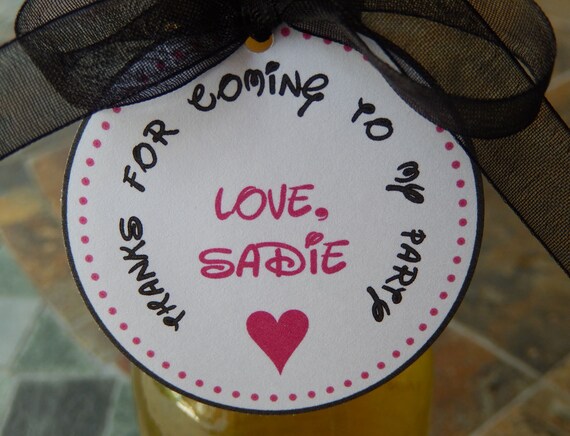 THANKS FOR COMING TO MY PARTY
LOVE,
SADIE